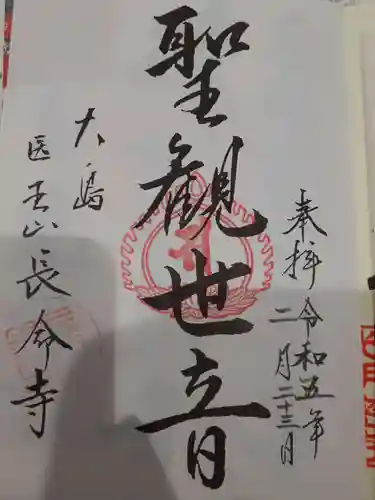 奉拝
令和五年
二月二十三日
聖観世音
大島
医王山長命寺